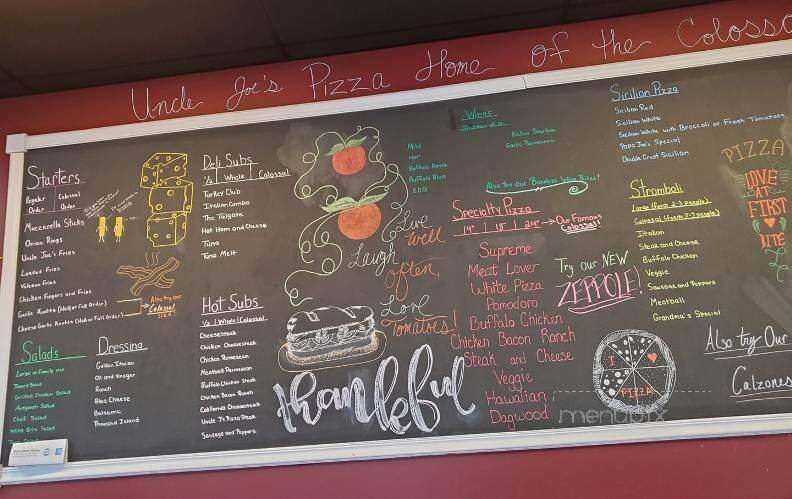 Uncle Joe's Pizza Home of the Coloss
Starters
Regular Colossal
Order Order
Mozzarella Sticks
Onion Rings
Uncle Joe's Fries
Loaded Fries
Volcano Fries
Chicken Fingers and Fries
Garlic Knots (Half or Full Order)
Cheese Garlic Knots (Half or Full Order)
Also try our
Colossal
size
Salads
Large or Family size
Tossed Salad
Grilled Chicken Salad
Antipasto Salad
Chef Salad
Wing Bite Salad
Dressing
Golden Italian
Oil and Vinegar
Ranch
Blue Cheese
Balsamic
Thousand Island
Deli Subs
1/2 | Whole | Colossal
Turkey Club
Italian Combo
The Tailgate
Hot Ham and Cheese
Tuna
Tuna Melt
Hot Subs
1/2 | Whole | Colossal
Cheesesteak
Chicken Cheesesteak
Chicken Parmesan
Meatball Parmesan
Buffalo Chicken Steak
Chicken Bacon Ranch
California Cheesesteak
Uncle J's Pizza Steak
Sausage and Peppers
Live
Well
Laugh
often
Love
Tomatoes!
thankful
Wings
Mild
Hot
Buffalo Ranch
Buffalo Blue
BBQ
Bourbon
Garlic Parmesan
Also Try Our Boneless Wing Bites!
Specialty Pizza
14" | 18" | 24" → Our Famous
Colossal!
Supreme
Meat Lover
White Pizza
Pomodoro
Buffalo Chicken
Chicken Bacon Ranch
Steak and Cheese
Veggie
Hawaiian
Dagwood
Try our NEW
ZEPPOLE!
Sicilian Pizza
Sicilian Red
Sicilian White
Sicilian White with Broccoli or Fresh Tomatoes
Papa Joe's Special
Double Crust Sicilian
Stromboli
Large (feeds 2-3 people)
Colossal (feeds 5-7 people)
Italian
Steak and Cheese
Buffalo Chicken
Veggie
Sausage and Peppers
Meatball
Grandma's Special
PIZZA
LOVE
AT
FIRST
BITE
I
PIZZA
Also try Our
Calzones
menupix